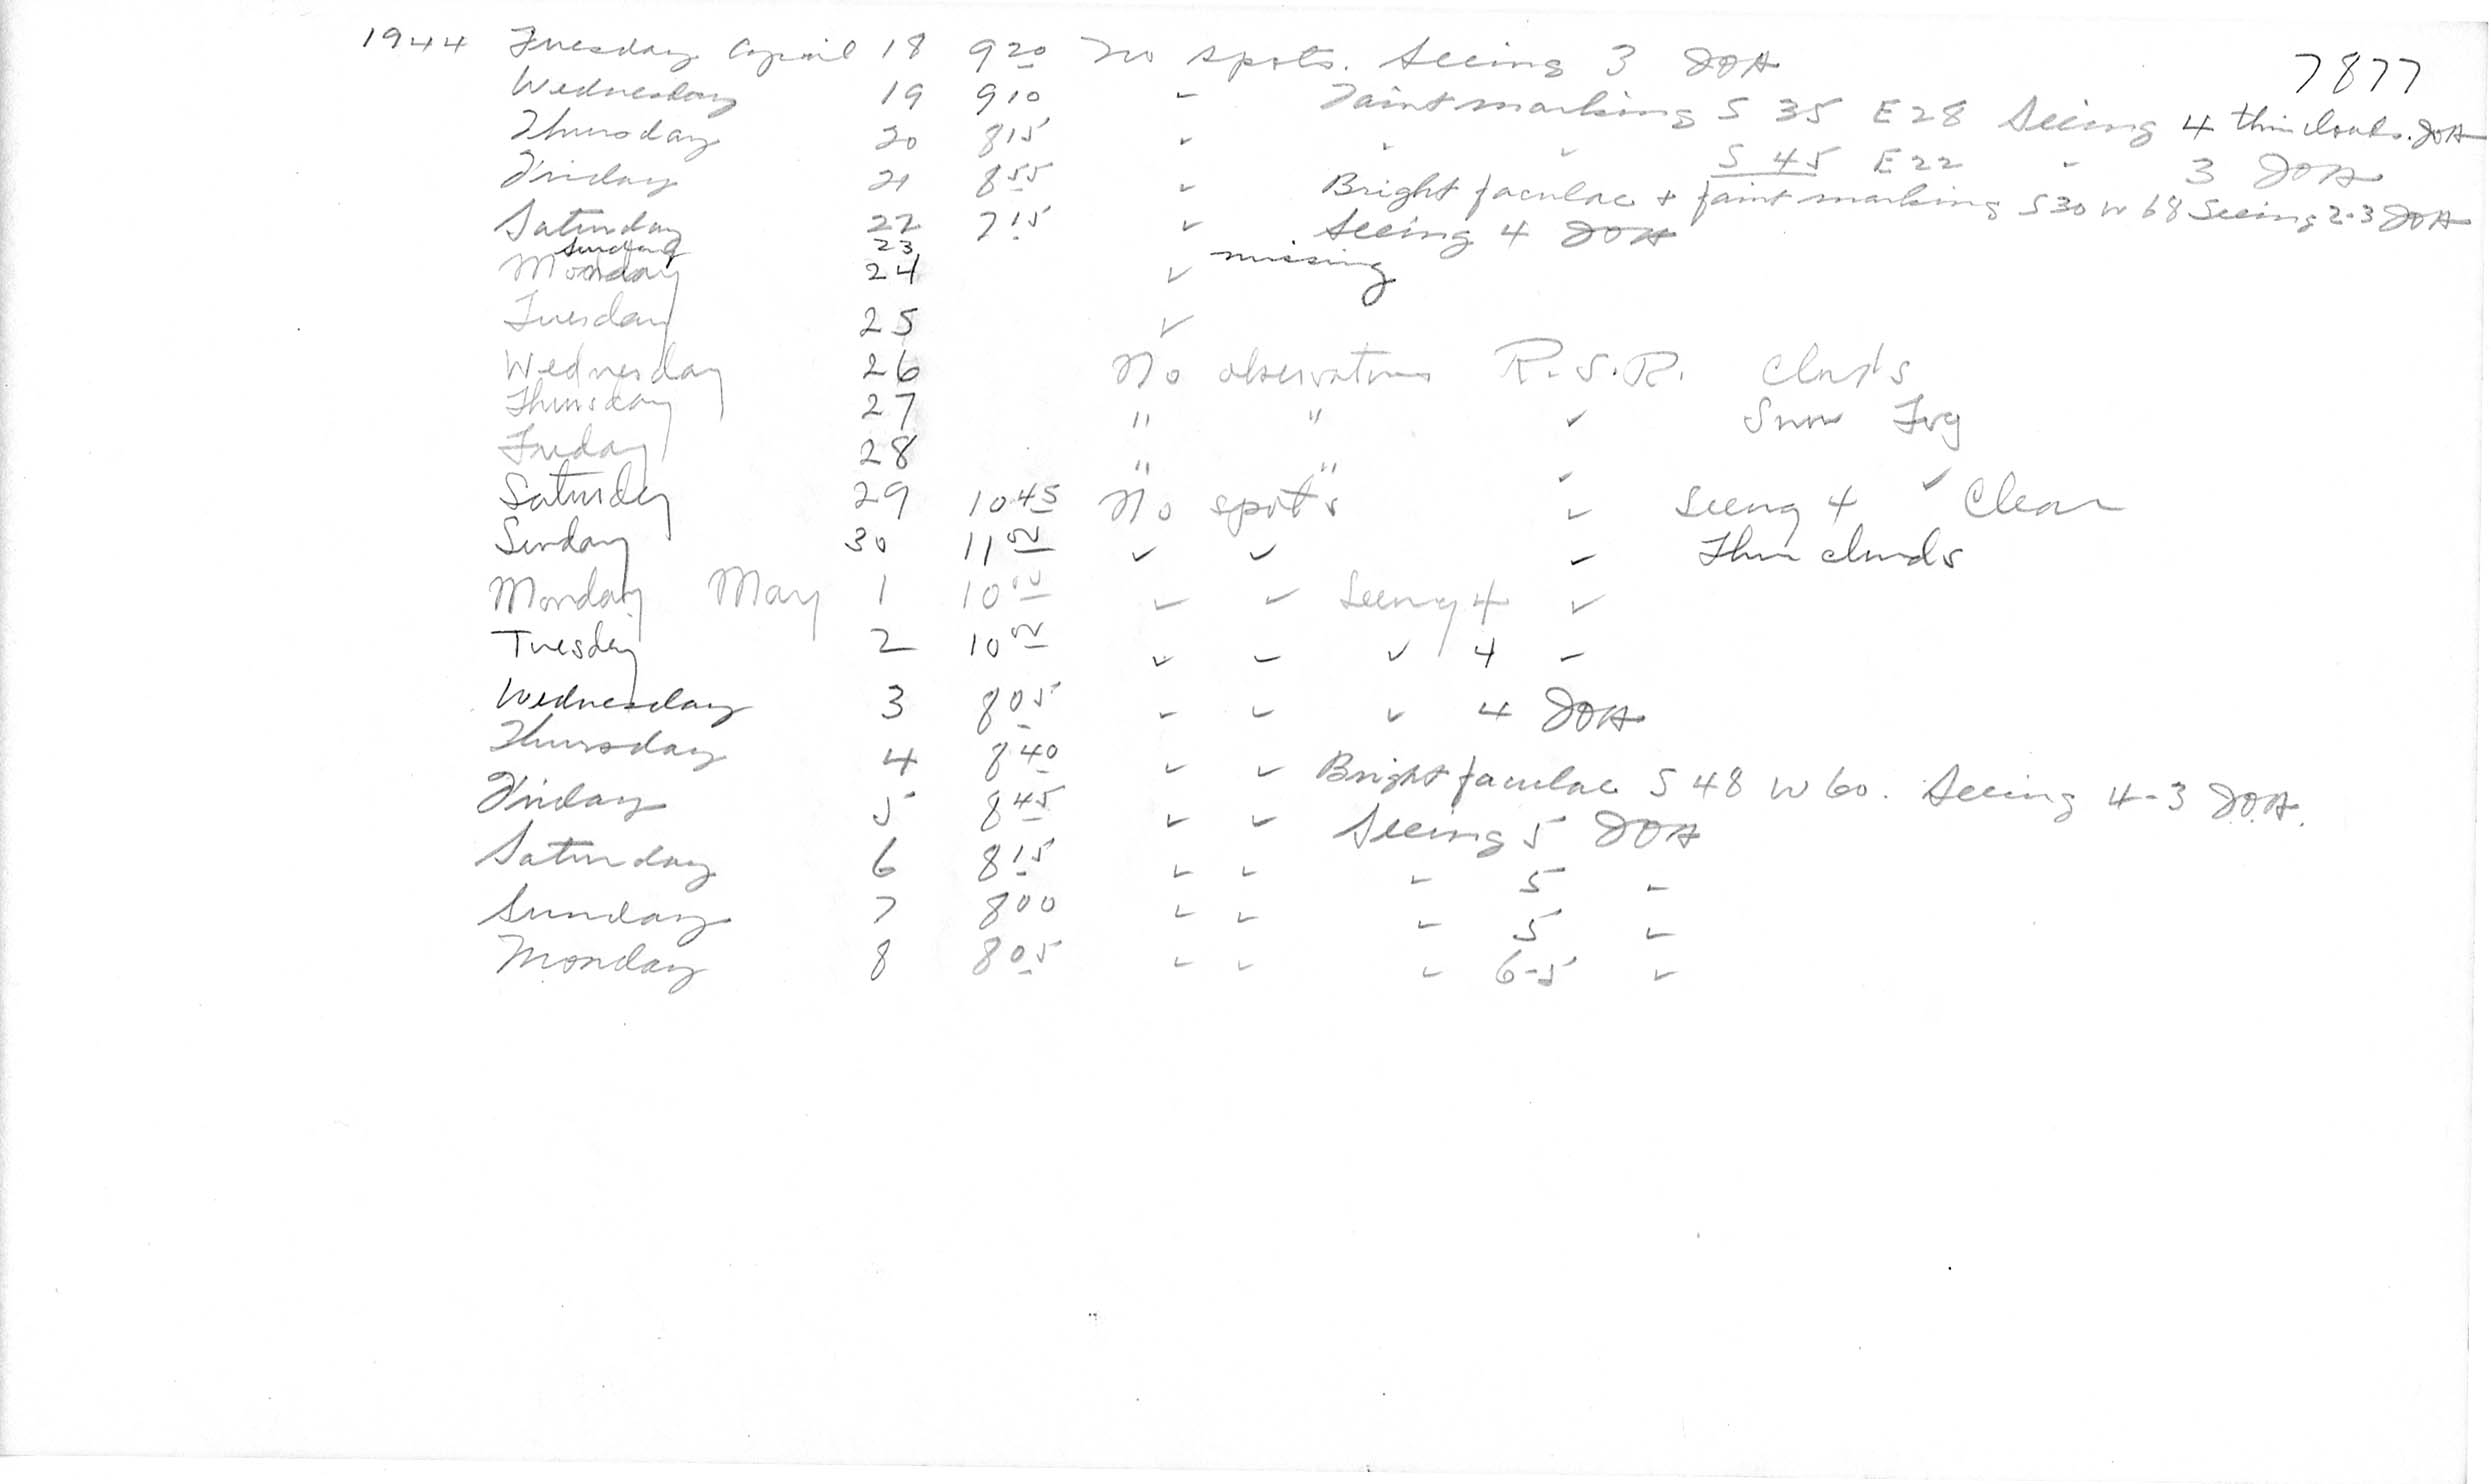 7877
1944 Tuesday April 18 9 20 No spots. Seeing 3 JOH
Wednesday 19 9 10 " Faint marking S 35 E 28 Seeing 4 thin clouds. JOH
Thursday 20 8 15 " " " S 45 E 22 " 3 JOH
Friday 21 8 55 " Bright faculae + faint marking S 30 W 68 Seeing 2-3 JOH
Saturday 22 7 15 " Seeing 4 JOH
Sunday 23 missing
Monday 24 ✓
Tuesday 25 ✓
Wednesday 26 No observations R.S.R. Clouds
Thursday 27 " " ✓ Snow Fog
Friday 28 " " ✓ ✓
Saturday 29 10 45 No spots ✓ Seeing 4 Clear
Sunday 30 11 00 ✓ ✓ ✓ Thin clouds
Monday May 1 10 00 ✓ ✓ Seeing 4 ✓
Tuesday 2 10 00 ✓ ✓ ✓ 4 ✓
Wednesday 3 8 05 ✓ ✓ ✓ 4 JOH
Thursday 4 8 40 ✓ ✓ Bright faculae S 48 W 60. Seeing 4-3 JOH.
Friday 5 8 45 ✓ ✓ Seeing 5 JOH
Saturday 6 8 15 ✓ ✓ ✓ 5 ✓
Sunday 7 8 00 ✓ ✓ ✓ 5 ✓
Monday 8 8 05 ✓ ✓ ✓ 6-5 ✓